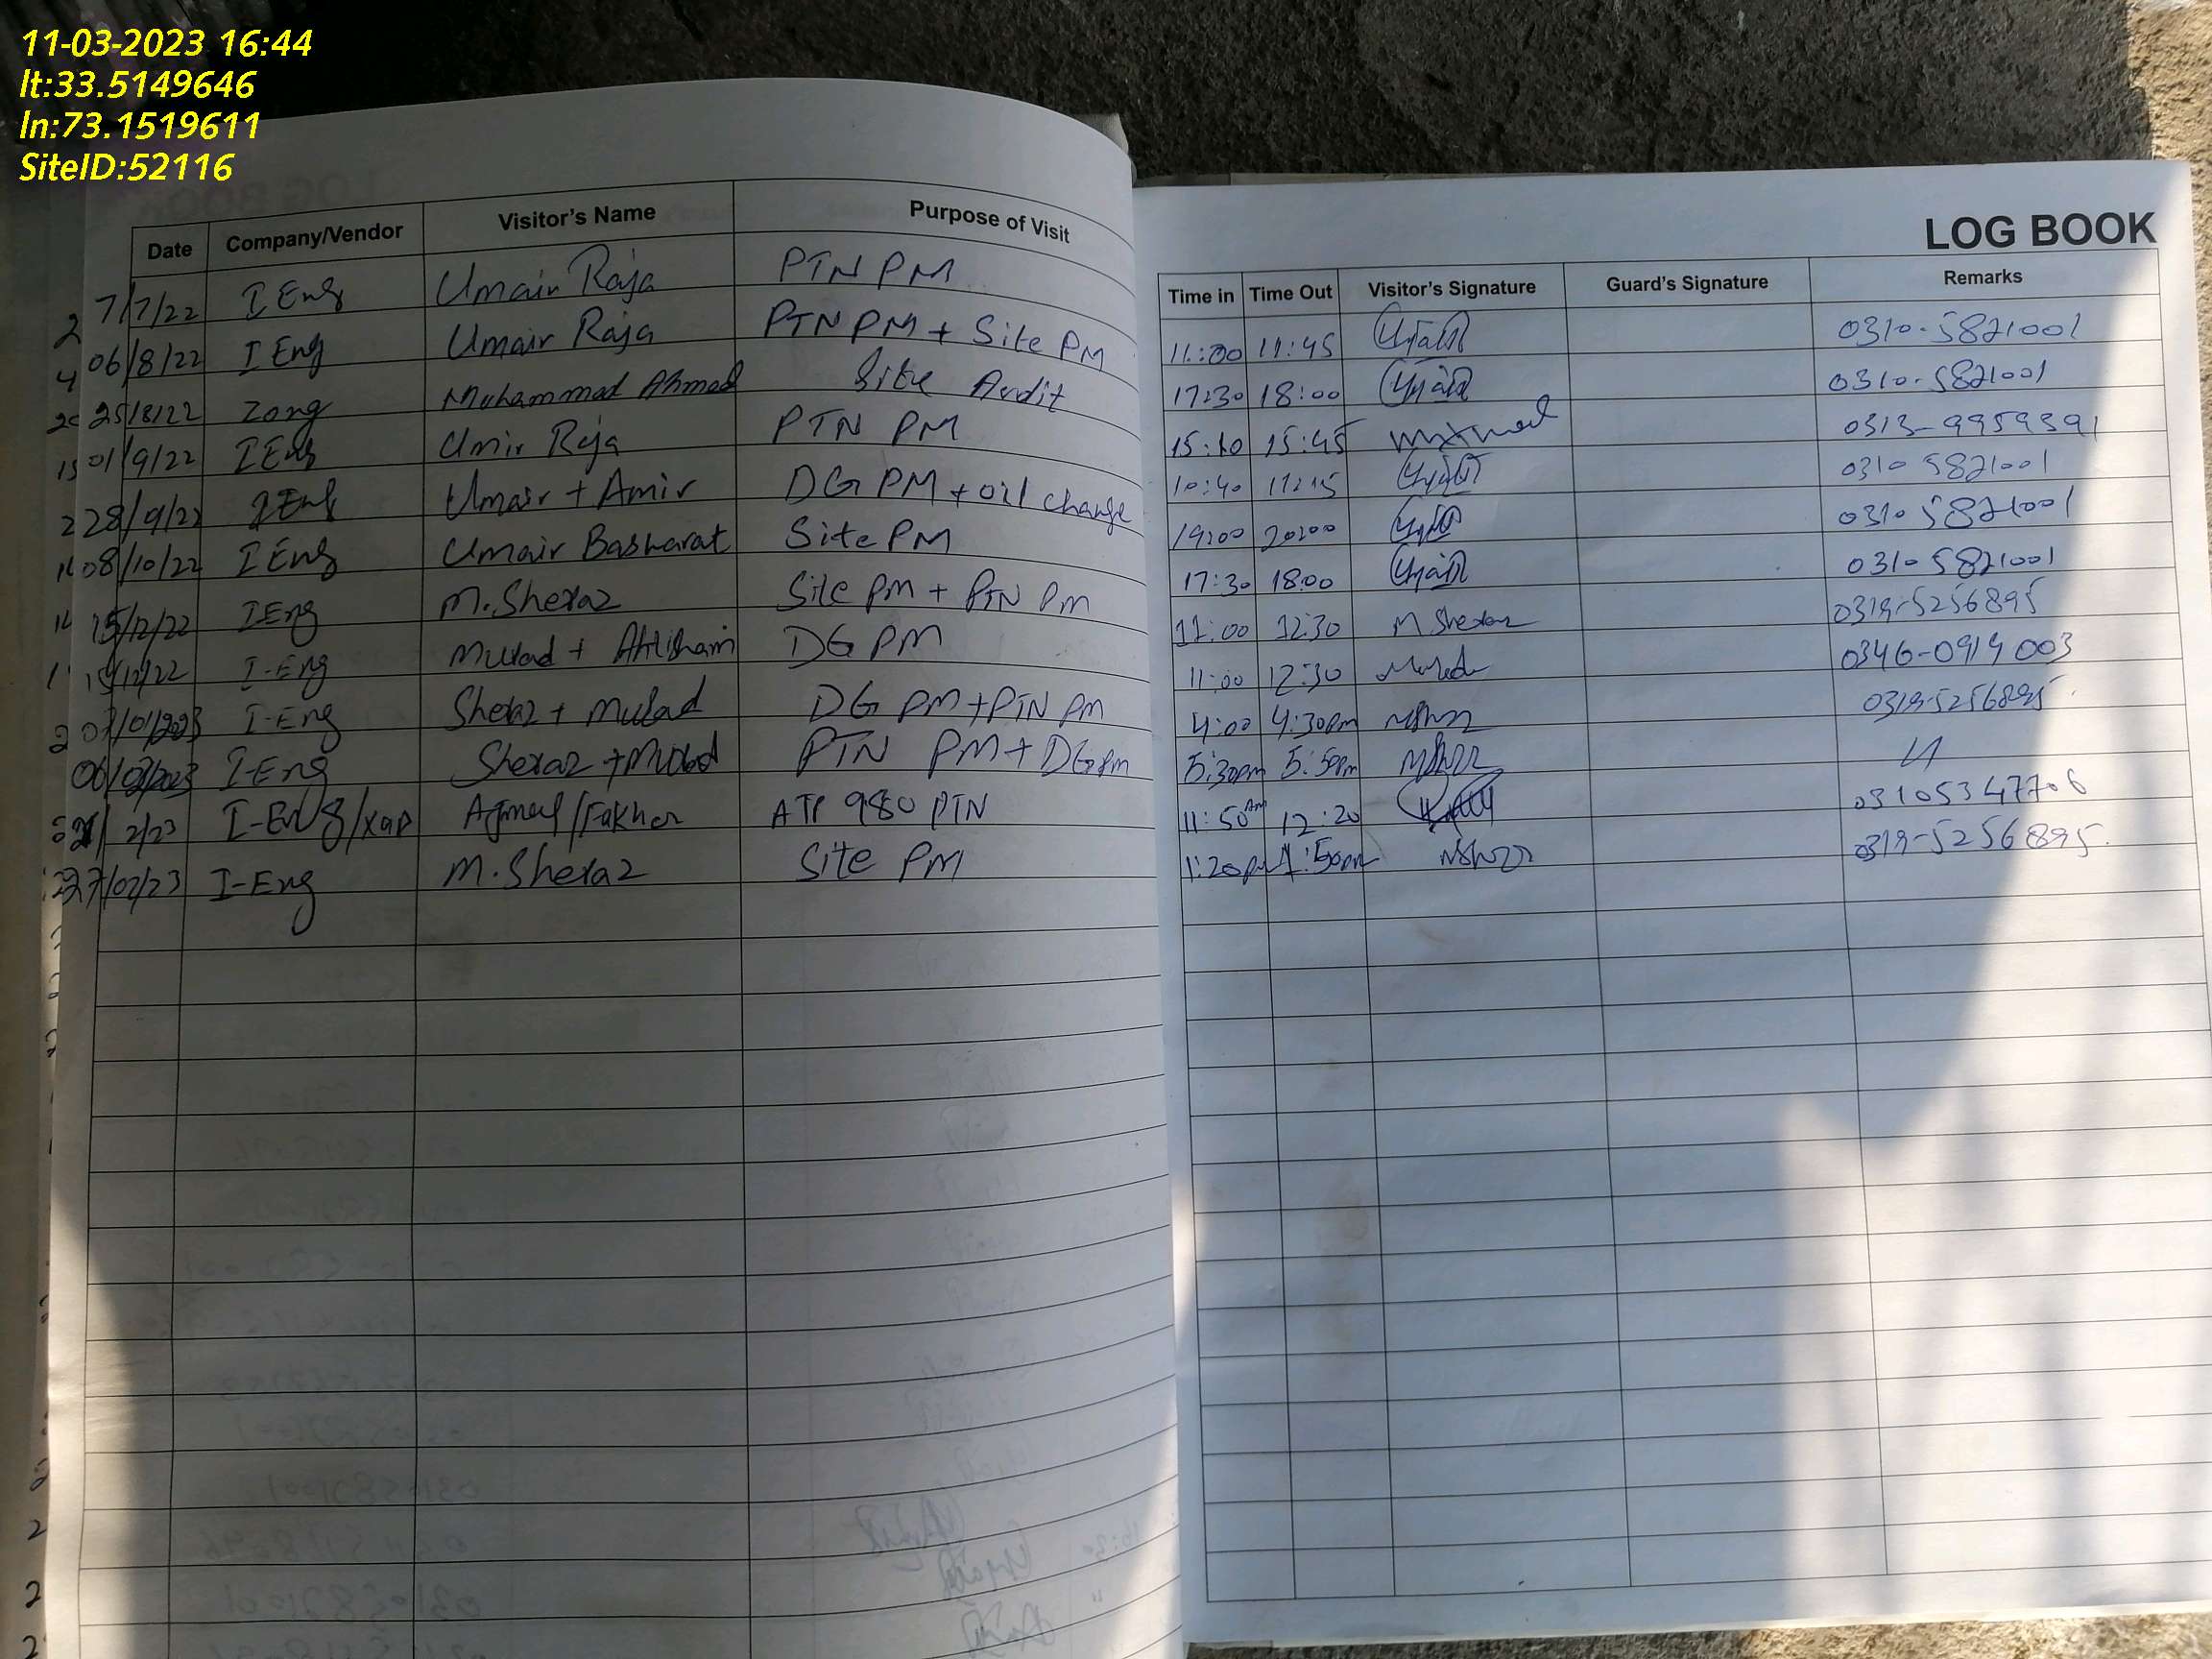 11-03-2023 16:44
lt:33.5149646
ln:73.1519611
SiteID:52116
LOG BOOK
Date Company/Vendor Visitor's Name Purpose of Visit Time in Time Out Visitor's Signature Guard's Signature Remarks
7/7/22 I Eng Umair Raja PTN PM 11:00 11:45 0310-5821001
06/8/22 I Eng Umair Raja PTN PM + Site PM 17:30 18:00 0310-5821001
25/8/22 Zong Muhammad Ahmad Site Audit 15:10 15:45 0313-9959391
01/9/22 I Eng Umir Raja PTN PM 10:40 11:15 0310 5821001
28/9/22 I Eng Umair + Amir DG PM + oil change 19:00 20:00 0310 5821001
08/10/22 I Eng Umair Basharat Site PM 17:30 18:00 0310 5821001
15/12/22 I Eng M.Sheraz Site PM + PTN PM 11:00 12:30 M Sheraz 0319-5256895
15/12/22 I-Eng Murad + Ahtisham DG PM 11:00 12:30 Murad 0346-0914003
I-Eng Sheraz + Murad DG PM + PTN PM 4:00 4:30pm 0319-5256895
I-Eng Sheraz + Murad PTN PM + DG PM 5:30pm 5:50pm
2/23 I-Eng/ Ajmal/Fakhar ATP 980 PTN 11:50 AM 12:20 03105347706
27/02/23 I-Eng M.Sheraz Site PM 1:20pm 1:50pm 0319-5256895.